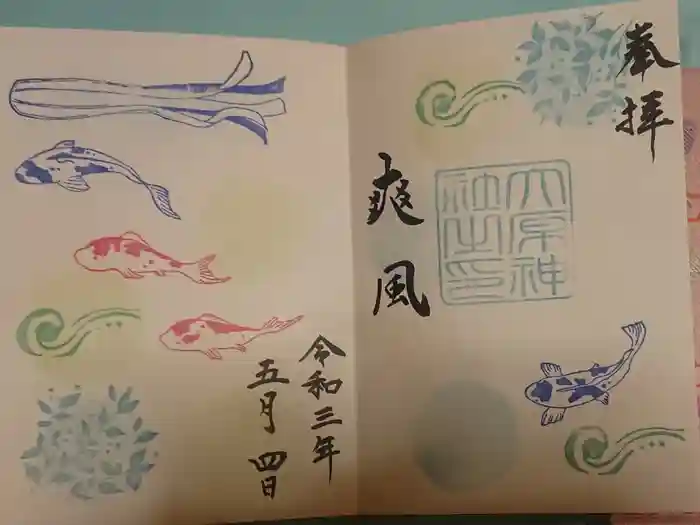 奉拝
爽風
大原神社之印
令和三年
五月四日